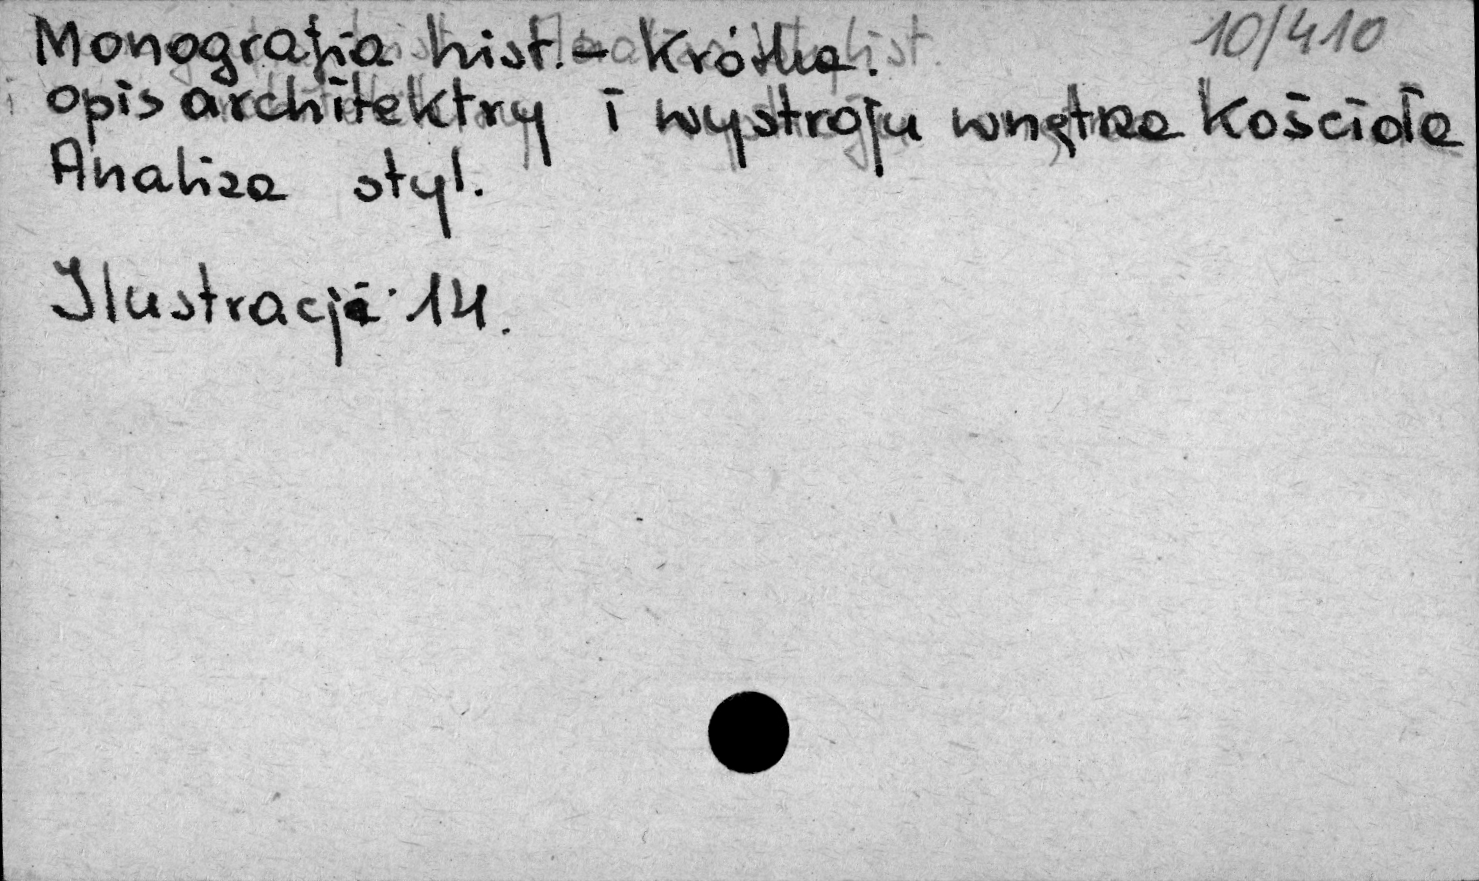 10/410
Monografia hist. - Krótka.
opis architektry i wystroju wnętrza Kościoła
Analiza styl.
Ilustracji 14.